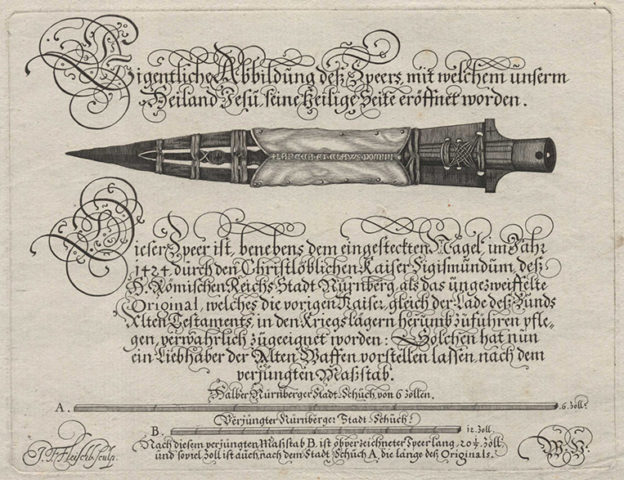 Eigentliche Abbildung deß Speers, mit welchem unserm
Heiland Jesu seine Heilige Seite eröffnet worden.
LANCEA ET CLAVVS DOMINI
Dieser Speer ist, benebens dem eingesteckten Nagel, im Jahr
1424. durch den Christlöblichen Kaiser Sigismundum, deß
H. Römischen Reichs Stadt Nürnberg, als das ungezweiffelte
Original, welches die vorigen Kaiser, gleich der Lade deß Bunds
Alten Testaments, in den Kriegslägern herumb zuführen pfle-
gen, verwahrlich zugeeignet worden: Solchen hat nun
ein Liebhaber der Alten Waffen vorstellen lassen nach dem
verjüngten Maßstab.
Halber Nürnberger Stadt-Schuch, von 6 zollen.
A. 6. Zoll.
Verjüngter Nürnberger Stadt Schuch.
B. 12. Zoll.
Nach diesem verjungten Maßstab B. ist obverzeichneter Speer lang, 20½. Zoll:
und soviel Zoll ist auch, nach dem Stadt Schuch A, die länge deß Originals.
Fleischb. sculp.